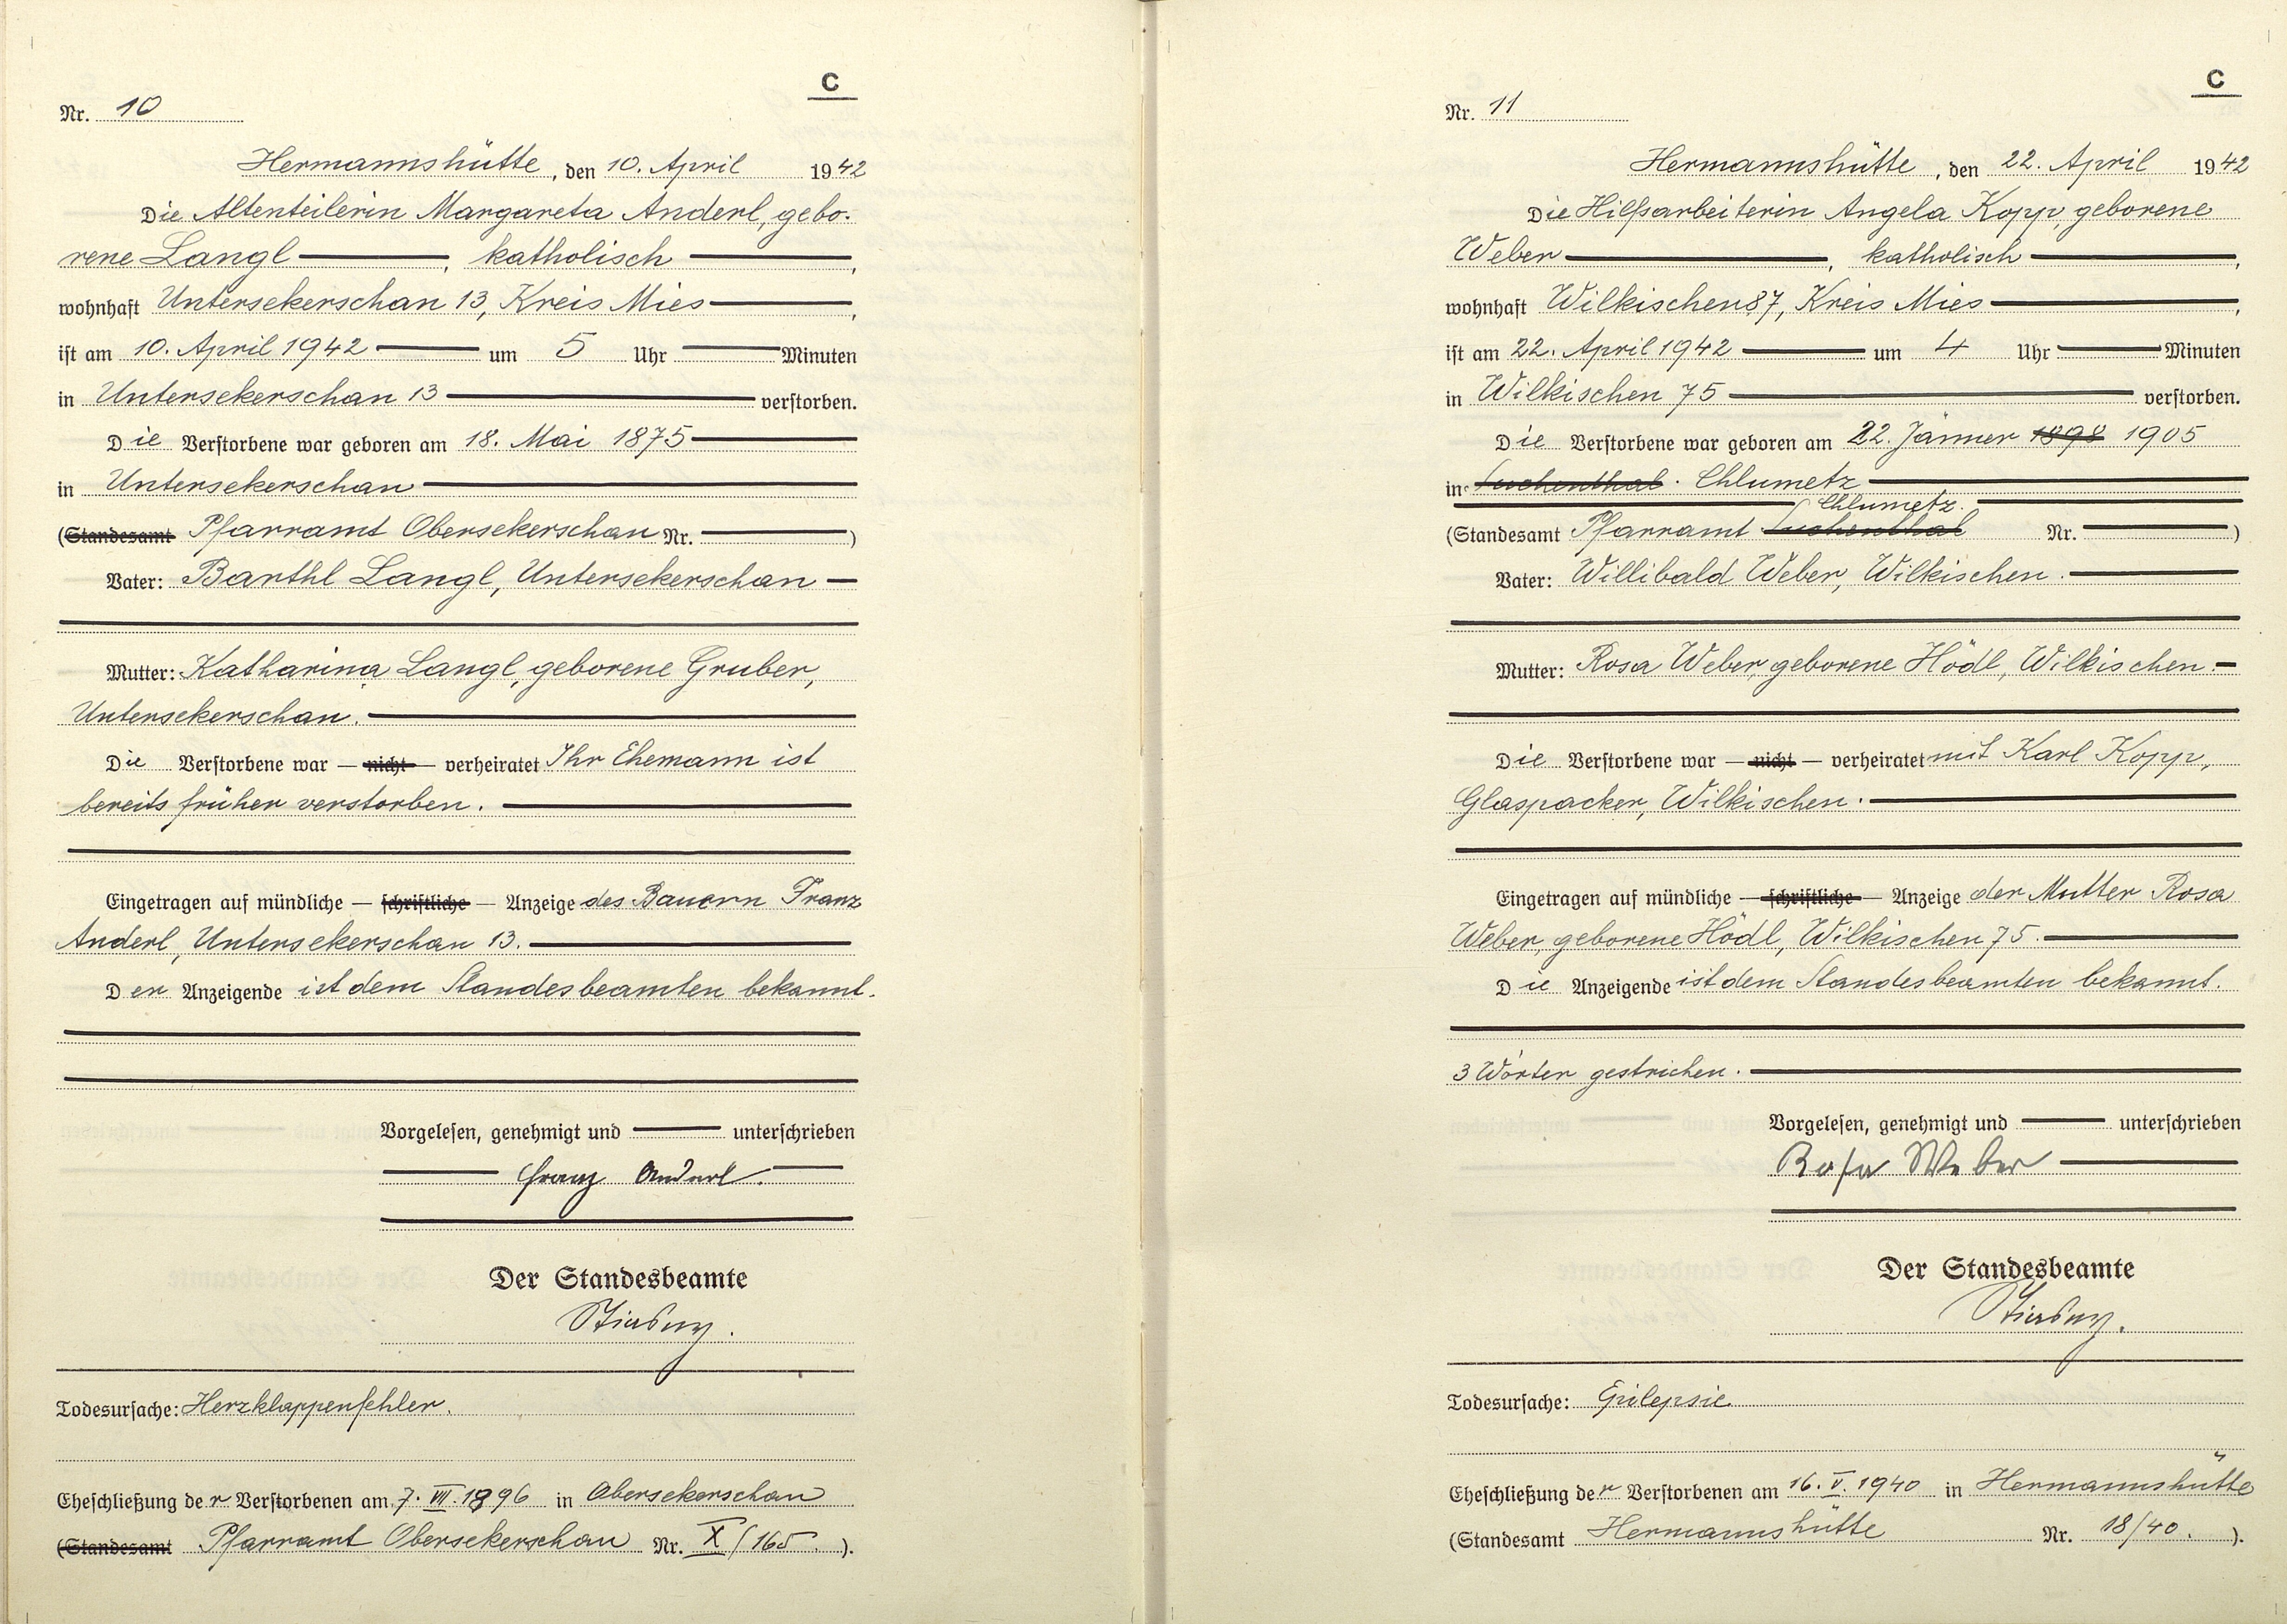 C
Nr. 10
Hermannshütte, den 10. April 1942
Die Altenteilerin Margareta Anderl, gebo-
rene Langl, katholisch,
wohnhaft Untersekerschan 13, Kreis Mies,
ist am 10. April 1942 um 5 Uhr Minuten
in Untersekerschan 13 verstorben.
Die Verstorbene war geboren am 18. Mai 1875
in Untersekerschan
(Standesamt Pfarramt Obersekerschan Nr. )
Vater: Barthl Langl, Untersekerschan
Mutter: Katharina Langl, geborene Gruber,
Untersekerschan.
Die Verstorbene war — nicht — verheiratet Ihr Ehemann ist
bereits früher verstorben.
Eingetragen auf mündliche — schriftliche — Anzeige des Bauern Franz
Anderl, Untersekerschan 13.
Der Anzeigende ist dem Standesbeamten bekannt.
Vorgelesen, genehmigt und unterschrieben
Franz Anderl.
Der Standesbeamte
Todesursache: Herzklappenfehler.
Eheschließung der Verstorbenen am 7. VII. 1896 in Obersekerschan
(Standesamt Pfarramt Obersekerschan Nr. X/165.).
C
Nr. 11
Hermannshütte, den 22. April 1942
Die Hilfsarbeiterin Angela Kopp, geborene
Weber, katholisch,
wohnhaft Wilkischen 87, Kreis Mies,
ist am 22. April 1942 um 4 Uhr Minuten
in Wilkischen 75 verstorben.
Die Verstorbene war geboren am 22. Jänner 1898 1905
in Suchenthal. Chlumetz
Chlumetz.
(Standesamt Pfarramt Suchenthal Nr. )
Vater: Willibald Weber, Wilkischen.
Mutter: Rosa Weber, geborene Hödl, Wilkischen.
Die Verstorbene war — nicht — verheiratet mit Karl Kopp,
Glaspacker, Wilkischen.
Eingetragen auf mündliche — schriftliche — Anzeige der Mutter Rosa
Weber, geborene Hödl, Wilkischen 75.
Die Anzeigende ist dem Standesbeamten bekannt.
3 Wörter gestrichen.
Vorgelesen, genehmigt und unterschrieben
Rosa Weber
Der Standesbeamte
Todesursache: Epilepsie
Eheschließung der Verstorbenen am 16. V. 1940 in Hermannshütte
(Standesamt Hermannshütte Nr. 18/40.).